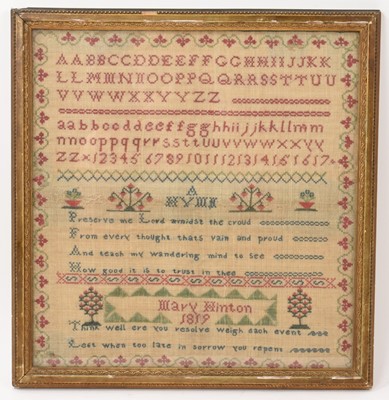 AABBCCDDEEFFGGHHIIJJKK
LLMMNNOOPPQQRRSSTTUU
VVWWXXYYZZ
aabbccddeeffgghhiijjkkllmm
nnooppqqrrssttuuvvwwxxyy
zz×1234567891011121314151617
A
HYMN
Preserve me Lord amidst the croud
From every thought thats vain and proud
And teach my wandering mind to see
How good it is to trust in thee
Mary Hinton
1819
Think well ere you resolve weigh each event
Lest when too late in sorrow you repent